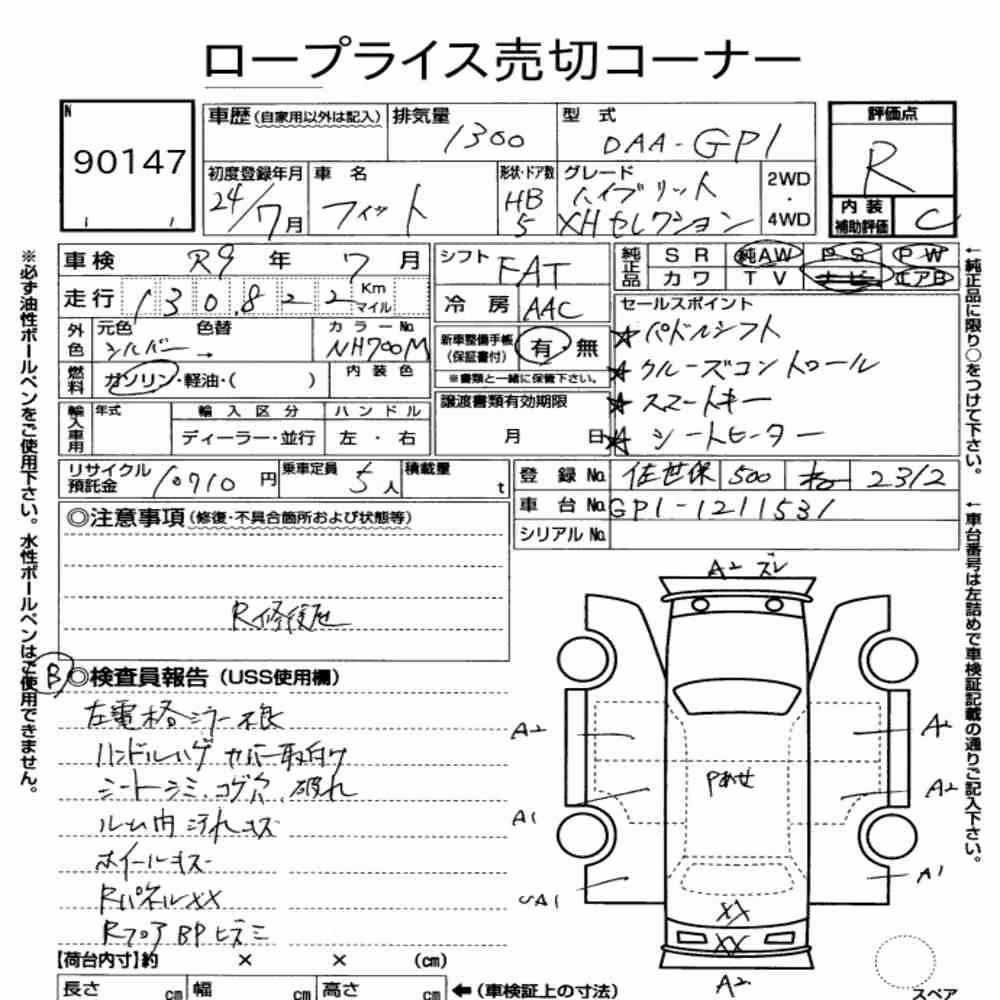 ロープライス売切コーナー
N
90147
車歴 (自家用以外は記入)
排気量
1300
型式
DAA-GP1
評価点
R
初度登録年月
24/7月
車名
フィット
形状・ドア数
HB
5
グレード
ハイブリット
XHセレクション
2WD
・
4WD
内装
補助評価
C
車検 R9 年 7 月
走行 130,822 Km
マイル
シフト FAT
冷房 AAC
純正品
SR 純AW PS PW
カワ TV ナビ エアB
外色
元色 色替 カラーNo.
シルバー → NH700M
燃料
ガソリン・軽油・( )
内装色
新車整備手帳
(保証書付)
有 無
※書類と一緒に保管下さい。
セールスポイント
★パドルシフト
★クルーズコントロール
★スマートキー
★シートヒーター
輸入車用
年式
輸入区分 ハンドル
ディーラー・並行 左・右
譲渡書類有効期限
月 日
リサイクル
預託金
10710 円
乗車定員 5人
積載量 t
登録No. 佐世保 500 2312
車台No. GP1-1211531
シリアルNo.
◎注意事項 (修復・不具合箇所および状態等)
R修復歴
B
◎検査員報告 (USS使用欄)
左電格ミラー不良
ハンドルハゲ カバー取付ケ
シートシミ、コゲ穴、破れ
ルーム内汚れキズ
ホイールキズ
RパネルXX
Rフロア BPヒズミ
A2 ズレ
A2
A2
Pあせ
A1
A2
A1
XX
XX
A2
【荷台内寸】約 × × (cm)
長さ cm 幅 cm 高さ cm
← (車検証上の寸法)
スペア
※必ず油性ボールペンをご使用下さい。水性ボールペンはご使用できません。
←純正品に限り○をつけて下さい。
←車台番号は左詰めで車検証記載の通りご記入下さい。